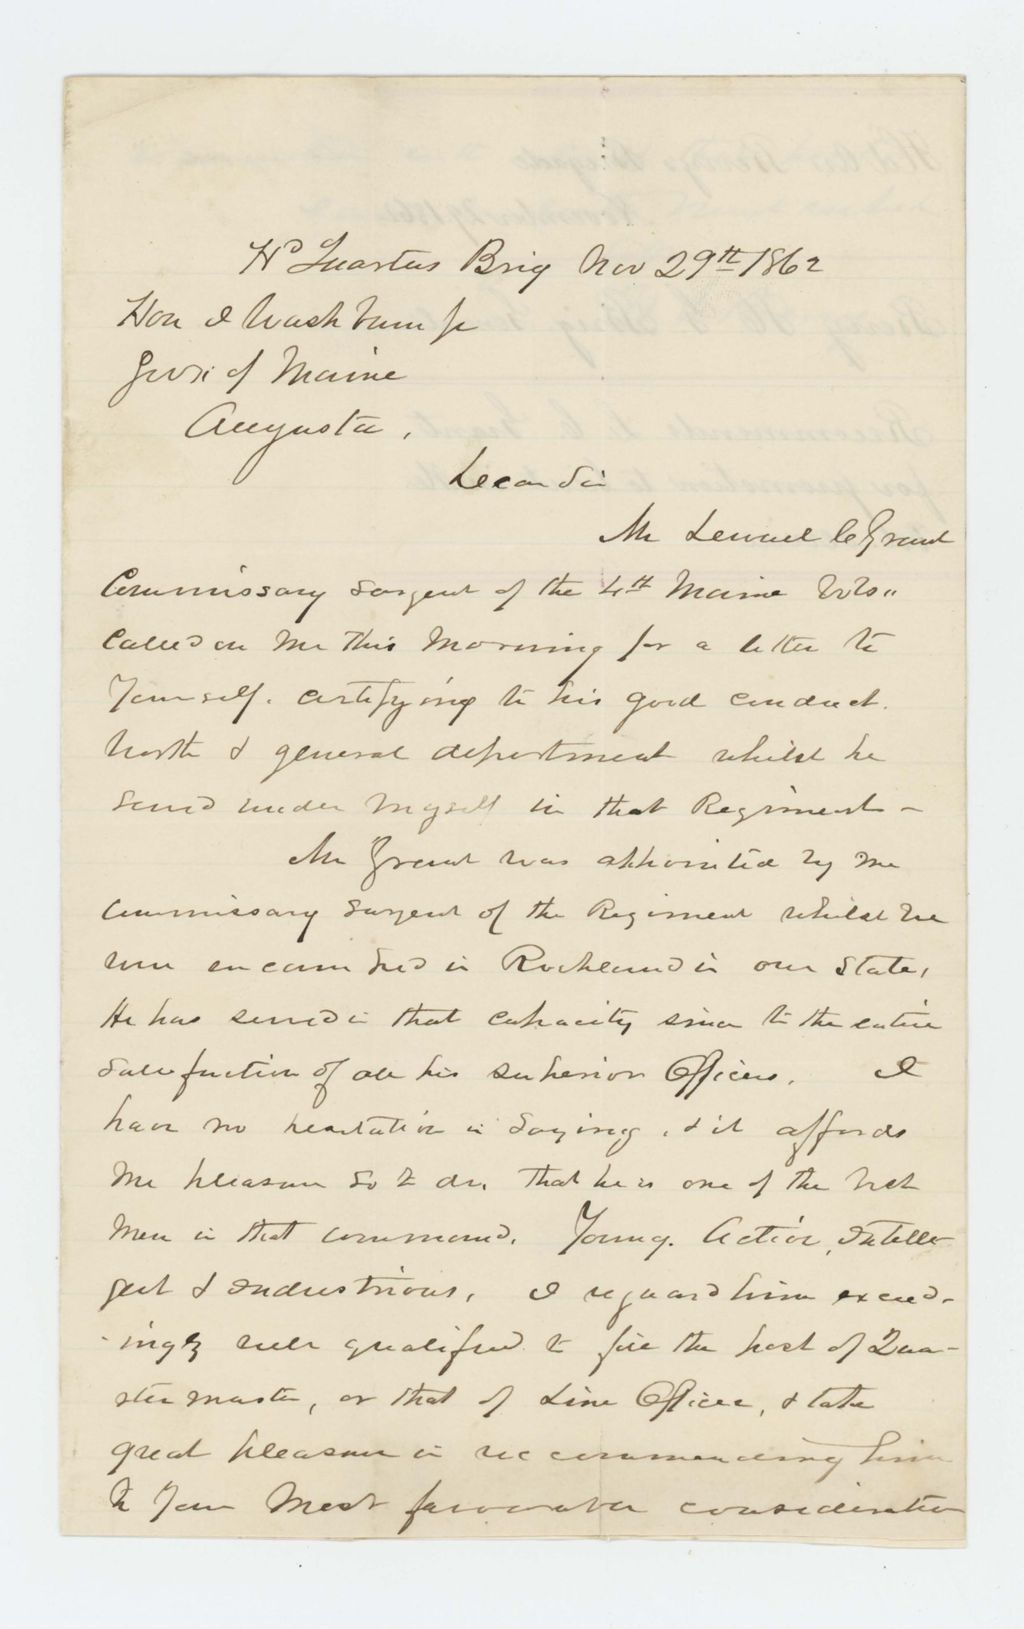 Hd Quarters Brig Nov 29th 1862
Hon I Washburn Jr
Gov. of Maine
Augusta,
Dear Sir
Mr Lemuel C Grant
Commissary Sargent of the 4th Maine Vols"
Called on Me This Morning for a letter to
Yourself. certifying to his good conduct.
Worth & general deportment whilst he
served under Myself in that Regiment -
Mr Grant was appointed by me
Commissary Sargent of the Regiment whilst we
were encamped in Rockland in our State,
He has served in that capacity since to the entire
satisfaction of all his superior Officers. I
have no hesitation in saying, & it affords
Me pleasure so to do, that he is one of the best
Men in that command. Young. Active, Intelli
gent & Industrious, I regard him exceed-
-ingly well qualified to fill the post of Qua-
ster master, or that of Line Officer, & take
great pleasure in reccommending him
to Your Most favorable consideration